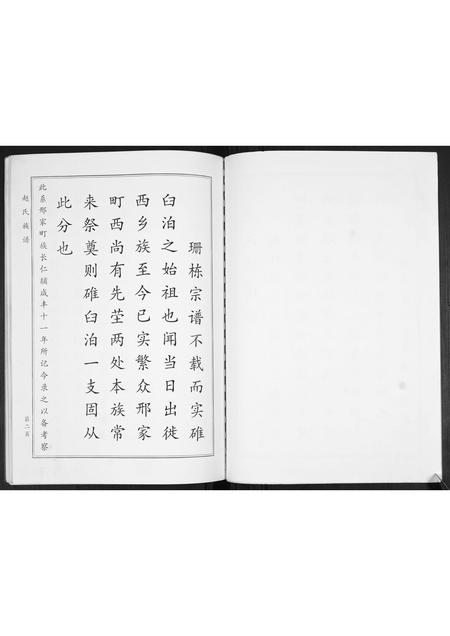 珊栋宗谱不载而实碓
臼泊之始祖也闻当日出徙
西乡族至今已实繁众邢家
町西尚有先茔两处本族常
来祭奠则碓臼泊一支固从
此分也
此系邢家町族长仁辅咸丰十一年所记今录之以备考察
赵氏族谱
第二页